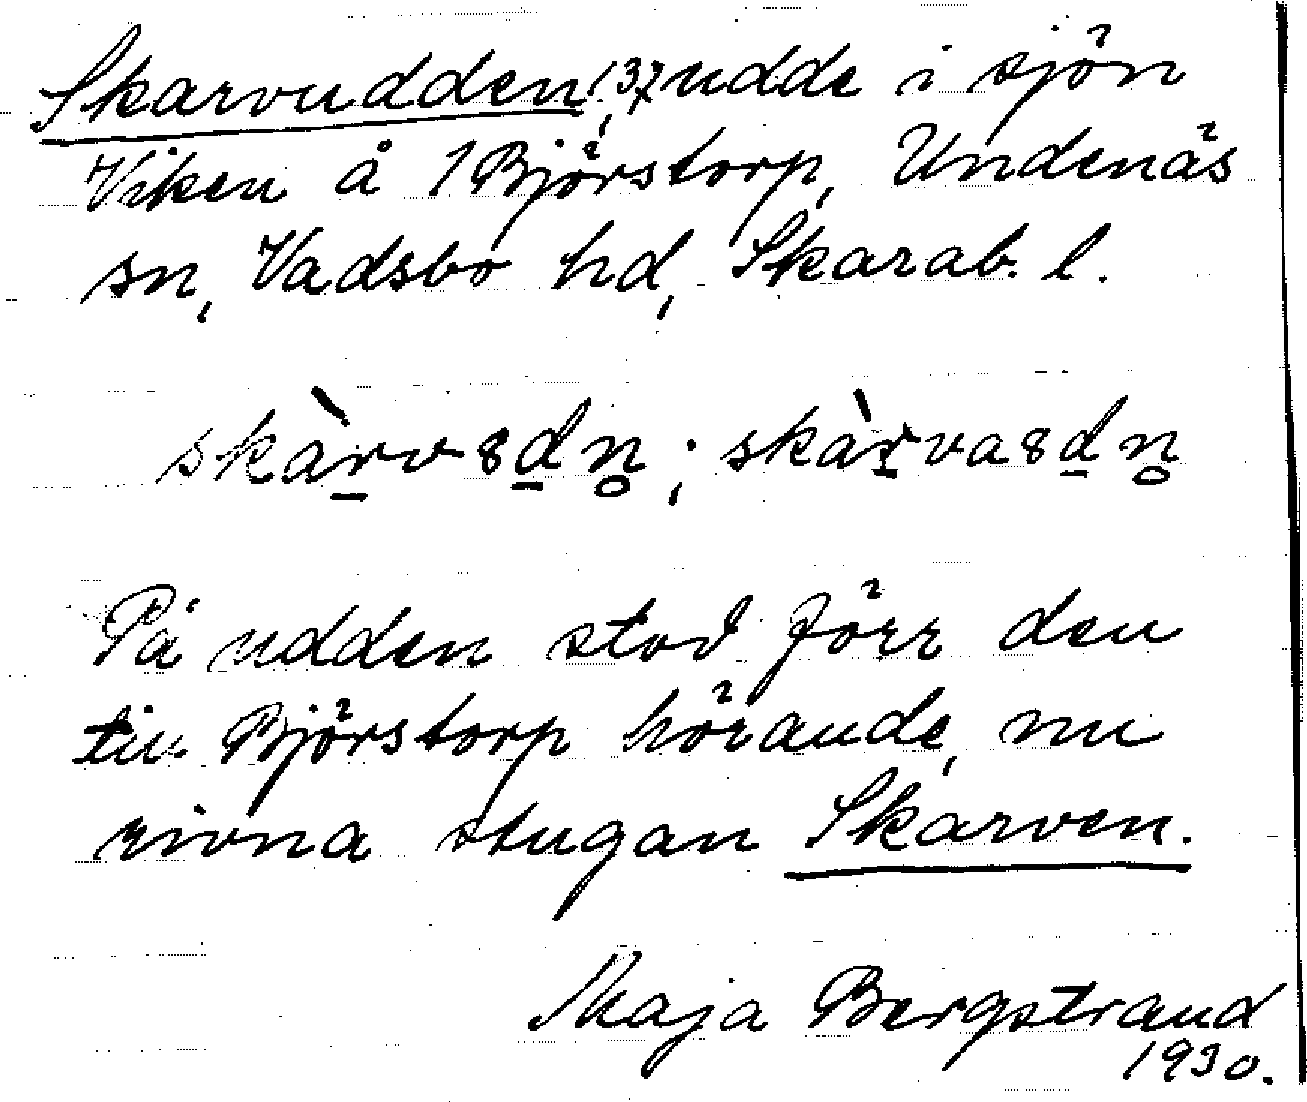 Skarvudden, 137 udde i sjön
Viken å 1 Björstorp, Undenäs
sn, Vadsbo hd, Skarab. l.
skàrv8dn̥ ; skàrva8dn̥
På udden stod förr den
till Björstorp hörande, nu
rivna stugan Skarven.
Maja Bergstrand
1930.